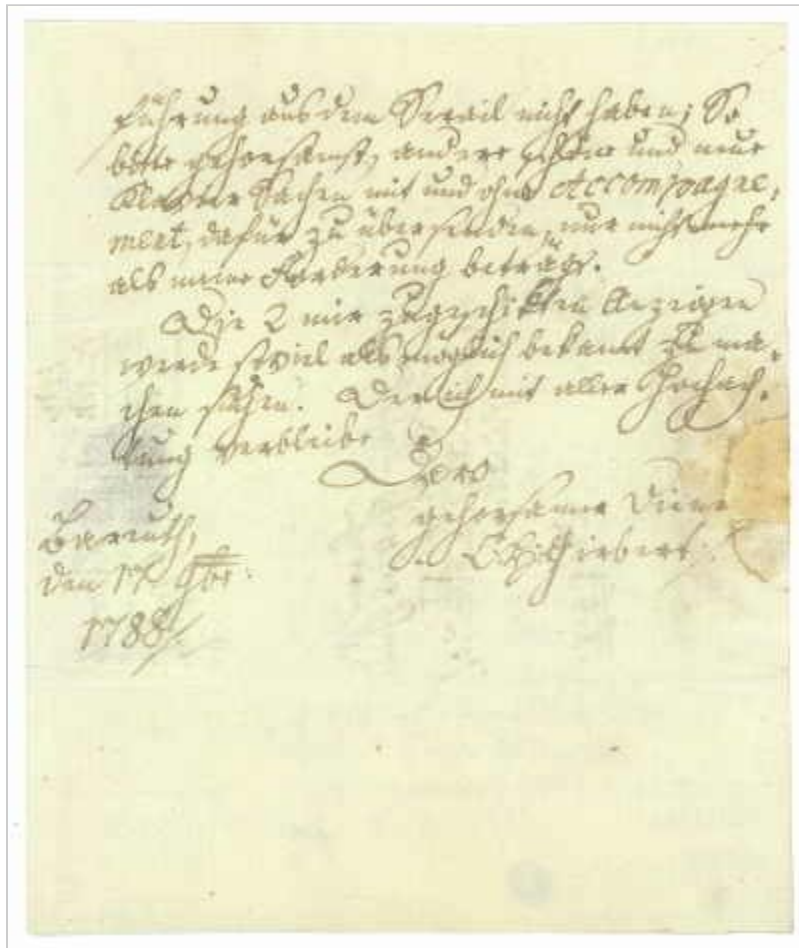 führung aus dem Serail nicht haben; So
bitte gehorsamst, andere schöne und neue
Klavier Sachen mit und ohne Accompagne,
ment, dafür zu übersenden, nur nicht mehr
als meine Forderung beträgt.
Die 2 mir zugeschikten Anzeigen
werde soviel als möglich bekannt zu ma,
chen suchen. Der ich mit aller Hochach,
tung verbleibe
Dero
gehorsamer Diener
Bareuth,
den 17 9br:
1788